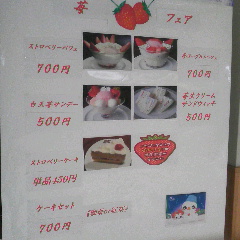 苺 フェア
ストロベリーパフェ
700円
700円
白玉苺サンデー
500円
苺生クリーム
サンドウィッチ
500円
ストロベリーケーキ
単品450円
ケーキセット
700円